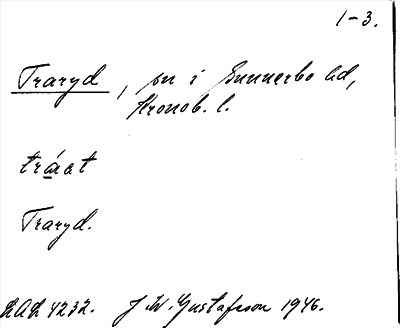 1-3.
Traryd, sn i Sunnerbo hd,
Kronob. l.
tráat
Traryd.
LAL 4232. J. W. Gustafsson 1946.